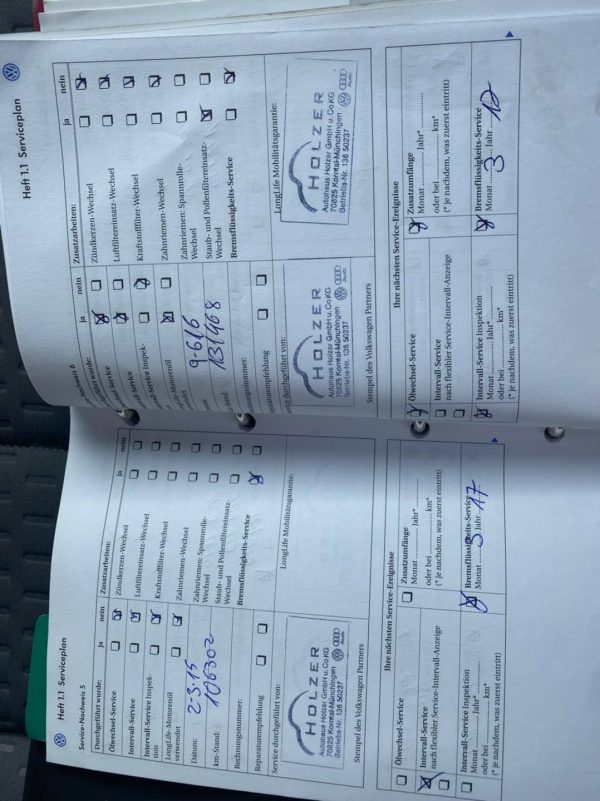 Heft 1.1 Serviceplan
Service-Nachweis 5
Durchgeführt wurde:
ja nein
Ölwechsel-Service
Intervall-Service
Intervall-Service Inspek-
tion
LongLife-Motorenöl
verwendet
Datum:
2-3-15
km-Stand:
106302
Rechnungsnummer:
Reparaturempfehlung
Service durchgeführt von:
HOLZER
Autohaus Holzer GmbH u. Co KG
70825 Korntal-Münchingen
Betriebs-Nr. 136 50237
Audi
Stempel des Volkswagen Partners
Zusatzarbeiten:
ja nein
Zündkerzen-Wechsel
Luftfiltereinsatz-Wechsel
Kraftstofffilter-Wechsel
Zahnriemen-Wechsel
Zahnriemen: Spannrolle-
Wechsel
Staub- und Pollenfiltereinsatz-
Wechsel
Bremsflüssigkeits-Service
LongLife Mobilitätsgarantie:
Ihre nächsten Service-Ereignisse
Ölwechsel-Service
Intervall-Service
nach flexibler Service-Intervall-Anzeige
Intervall-Service Inspektion
Monat ............ Jahr* ............
oder bei ............ km*
(* je nachdem, was zuerst eintritt)
Zusatzumfänge
Monat ............ Jahr* ............
oder bei ............ km*
(* je nachdem, was zuerst eintritt)
Bremsflüssigkeits-Service
Monat 3 Jahr 17
Heft 1.1 Serviceplan
-Nachweis 6
wurde:
ja nein
Service
Service
Service Inspek-
-Motorenöl
9-6-16
131468
Service durchgeführt von:
HOLZER
Autohaus Holzer GmbH u. Co KG
70825 Korntal-Münchingen
Betriebs-Nr. 136 50237
Audi
Stempel des Volkswagen Partners
Zusatzarbeiten:
ja nein
Zündkerzen-Wechsel
Luftfiltereinsatz-Wechsel
Kraftstofffilter-Wechsel
Zahnriemen-Wechsel
Zahnriemen: Spannrolle-
Wechsel
Staub- und Pollenfiltereinsatz-
Wechsel
Bremsflüssigkeits-Service
LongLife Mobilitätsgarantie:
HOLZER
Autohaus Holzer GmbH u. Co KG
70825 Korntal-Münchingen
Betriebs-Nr. 136 50237
Audi
Ihre nächsten Service-Ereignisse
Ölwechsel-Service
Intervall-Service
nach flexibler Service-Intervall-Anzeige
Intervall-Service Inspektion
Monat ............ Jahr* ............
oder bei ............ km*
(* je nachdem, was zuerst eintritt)
Zusatzumfänge
Monat ............ Jahr* ............
oder bei ............ km*
(* je nachdem, was zuerst eintritt)
Bremsflüssigkeits-Service
Monat 3 Jahr 17